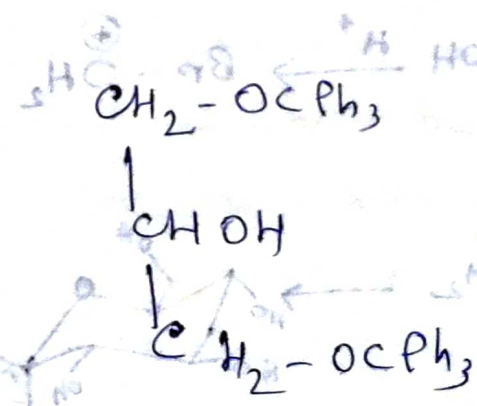 CH₂-OCPh₃
CHOH
CH₂-OCPh₃